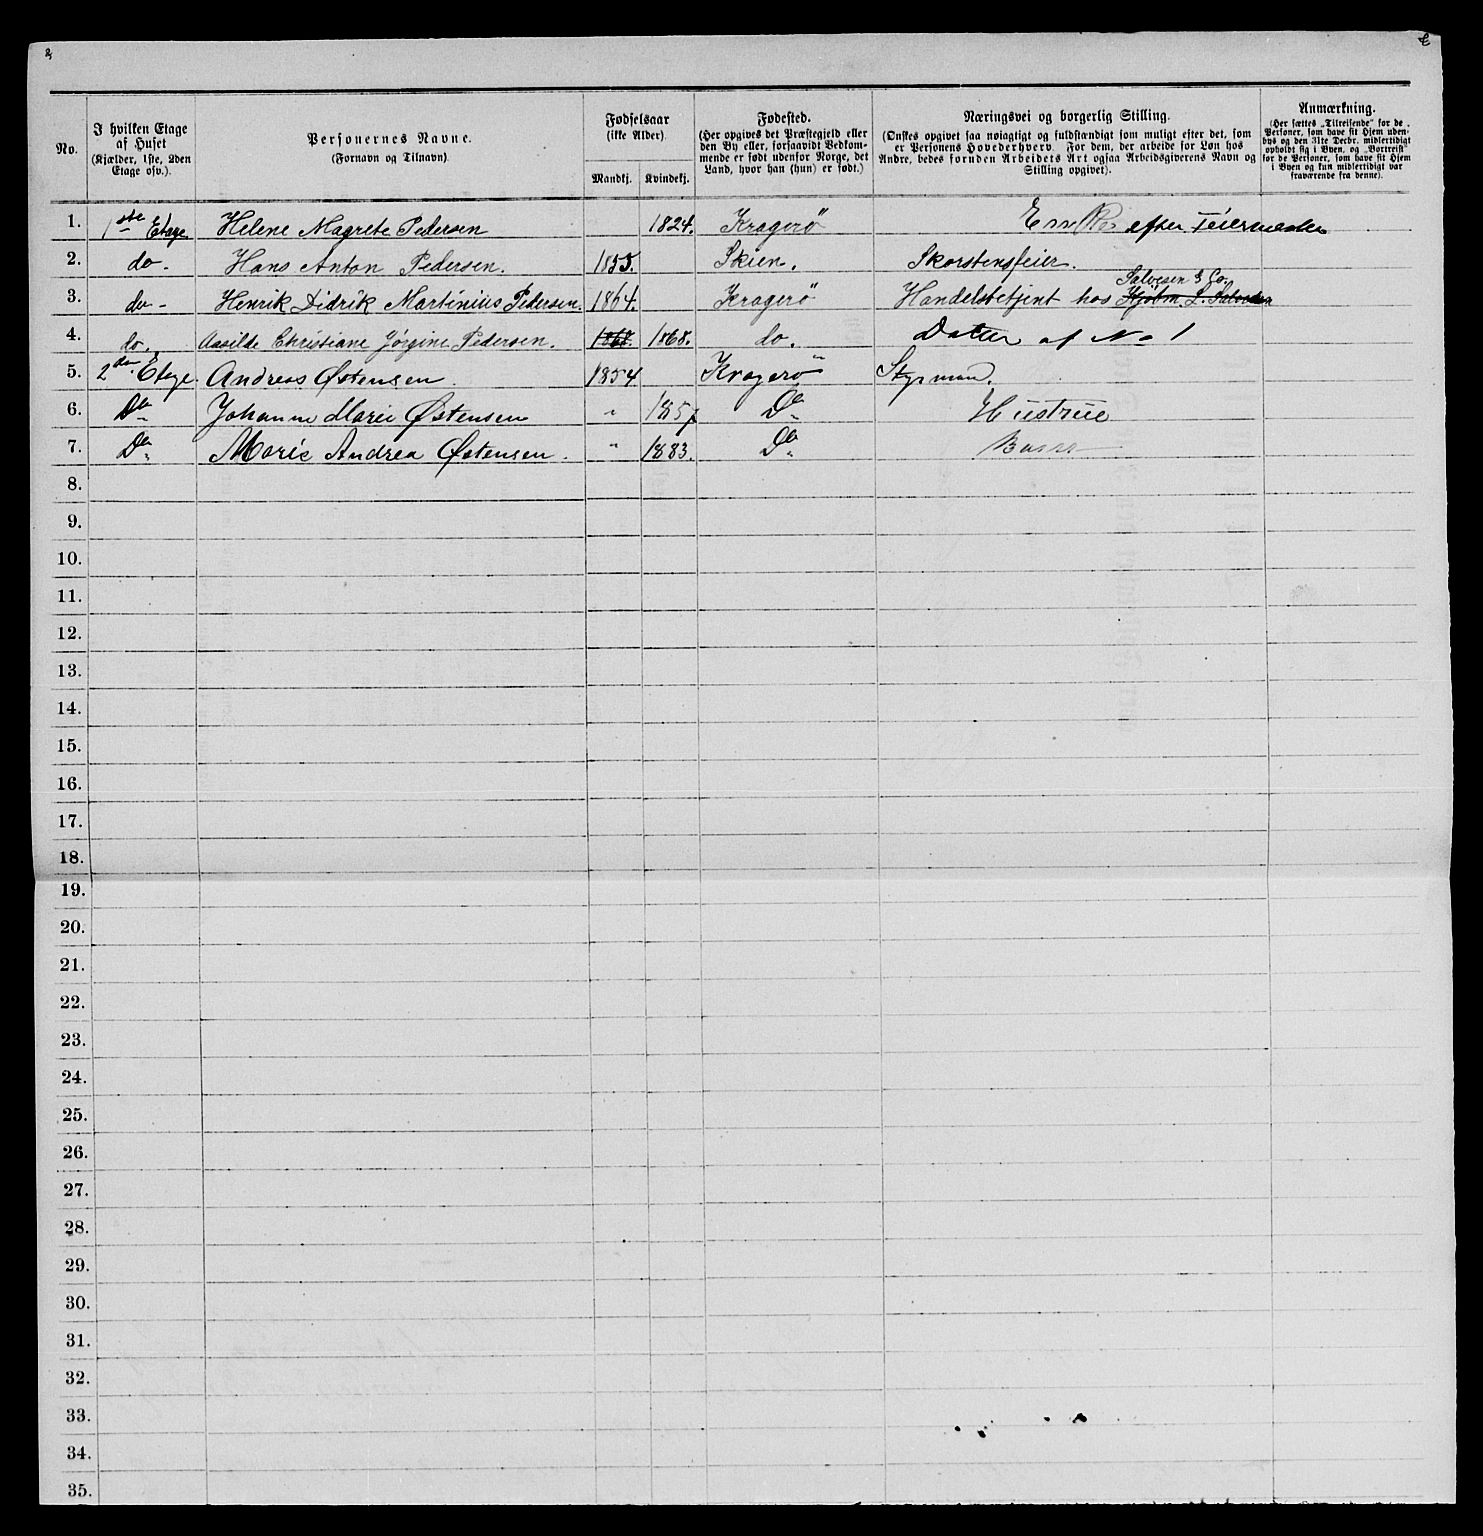 No.
I hvilken Etage
af Huset
(Kjælder, 1ste, 2den
Etage osv.).
Personernes Navne.
(Fornavn og Tilnavn).
Fødselsaar
(ikke Alder).
Mandkj. Kvindekj.
Fødested.
(Her opgives det Præstegjeld eller
den By eller, forsaavidt Vedkom-
mende er født udenfor Norge, det
Land, hvor han (hun) er født.)
Næringsvei og borgerlig Stilling.
(Ønskes opgivet saa nøiagtigt og fuldstændigt som muligt efter det, som
er Personens Hovederhverv. For dem, der arbeide for Løn hos
Andre, bedes foruden Arbeidets Art ogsaa Arbeidsgiverens Navn og
Stilling opgivet).
Anmærkning.
(Her sættes „Tilreisende" for de
Personer, som have sit Hjem uden-
bys og den 31te Decbr. midlertidigt
opholdt sig i Byen, og „Bortreist"
for de Personer, som have sit Hjem
i Byen og kun midlertidigt var
fraværende fra denne).
1. 1ste Etage Helene Magrete Pedersen 1824. Kragerö Enke efter Feiermester
2. do. Hans Anton Pedersen. 1855. Skien. Skorstensfeier.
Salvesen & Co.
3. do - Henrik Didrik Martinius Pedersen. 1864. Kragerö Handelsbetjent hos
4. do. Aasilde Christiane Jörgine Pedersen. 1868. 1868. do. Datter af No 1
5. 2den Etage Andreas Østensen. 1854 Kragerö Styrmand.
6. Do Johanne Marie Østensen " 1857 Do Hustrue
7. Do Marie Andrea Østensen. " 1883. Do Barn
8.
9.
10.
11.
12.
13.
14.
15.
16.
17.
18.
19.
20.
21.
22.
23.
24.
25.
26.
27.
28.
29.
30.
31.
32.
33.
34.
35.